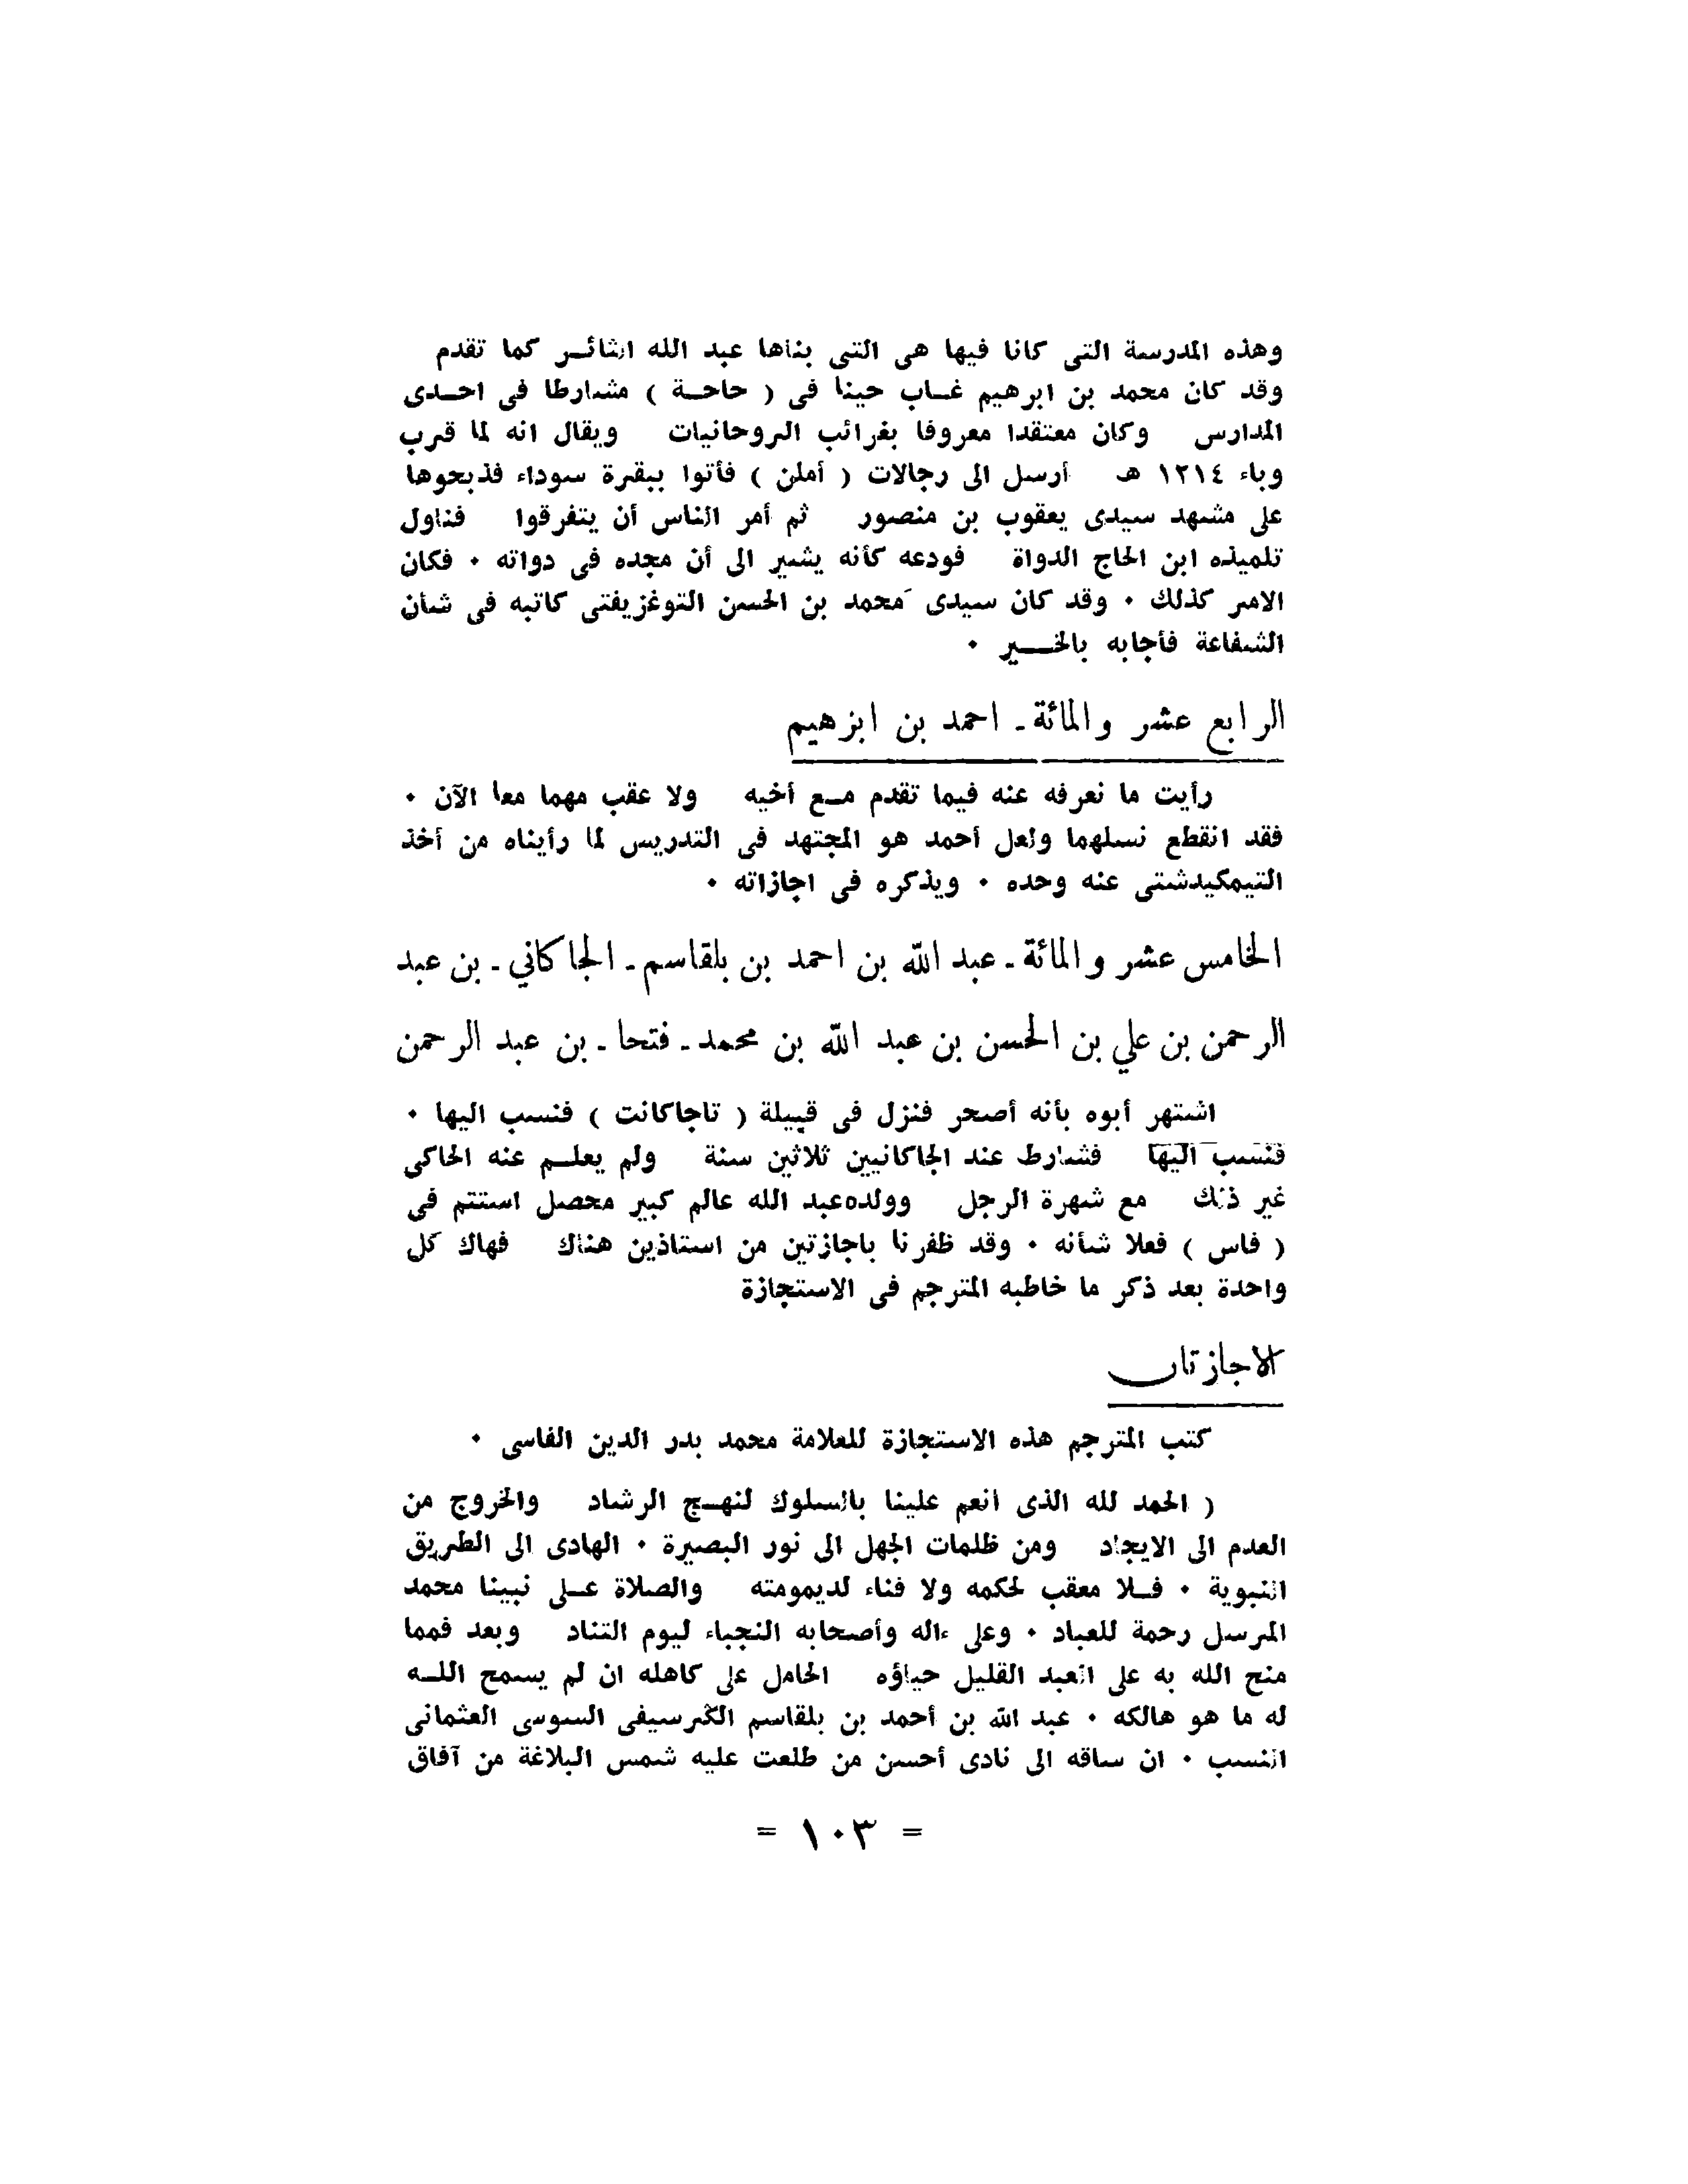 وهذه المدرسة التى كانا فيها هى التى بناها عبد الله الثائـر كما تقدم
وقد كان محمد بن ابرهيم غـاب حينا فى ( حاحـة ) مشارطا فى احـدى
المدارس وكان معتقدا معروفا بغرائب الروحانيات ويقال انه لما قرب
وباء ١٢١٤ هـ أرسل الى رجالات ( أملن ) فأتوا ببقرة سوداء فذبحوها
على مشهد سيدى يعقوب بن منصور ثم أمر الناس أن يتفرقوا فناول
تلميذه ابن الحاج الدواة فودعه كأنه يشير الى أن مجده فى دواته ٠ فكان
الامر كذلك ٠ وقد كان سيدى مَحمد بن الحسن التوغزيفتى كاتبه فى شأن
الشفاعة فأجابه بالخـــير ٠
الرابع عشر والمائة - احمد بن ابرهيم
رأيت ما نعرفه عنه فيما تقدم مـع أخيه ولا عقب مهما معا الآن ٠
فقد انقطع نسلهما ولعل أحمد هو المجتهد فى التدريس لما رأيناه من أخذ
التيمكيدشتى عنه وحده ٠ ويذكره فى اجازاته ٠
الخامس عشر والمائة - عبد الله بن احمد بن بلقاسم - الجاكاني - بن عبد
الرحمن بن علي بن الحسن بن عبد الله بن محمد - فتحا - بن عبد الرحمن
اشتهر أبوه بأنه أصحر فنزل فى قبيلة ( تاجاكانت ) فنسب اليها ٠
فنسب اليها فشارط عند الجاكانيين ثلاثين سنة ولم يعلـم عنه الحاكى
غير ذلك مع شهرة الرجل وولده عبد الله عالم كبير محصل استتم فى
( فاس ) فعلا شأنه ٠ وقد ظفرنا باجازتين من استاذين هناك فهاك كل
واحدة بعد ذكر ما خاطبه المترجم فى الاستجازة
الاجازتان
كتب المترجم هذه الاستجازة للعلامة محمد بدر الدين الفاسى ٠
( الحمد لله الذى أنعم علينا بالسلوك لنهـج الرشاد والخروج من
العدم الى الايجاد ومن ظلمات الجهل الى نور البصيرة ٠ الهادى الى الطريق
النبوية ٠ فـلا معقب لحكمه ولا فناء لديمومته والصلاة عـلى نبينا محمد
المرسل رحمة للعباد ٠ وعلى ءاله وأصحابه النجباء ليوم التناد وبعد فمما
منح الله به على العبد القليل حياؤه الحامل على كاهله ان لم يسمح اللـه
له ما هو هالكه ٠ عبد الله بن أحمد بن بلقاسم الگرسيفى السوسى العثمانى
النسب ٠ ان ساقه الى نادى أحسن من طلعت عليه شمس البلاغة من آفاق
= ١٠٣ =